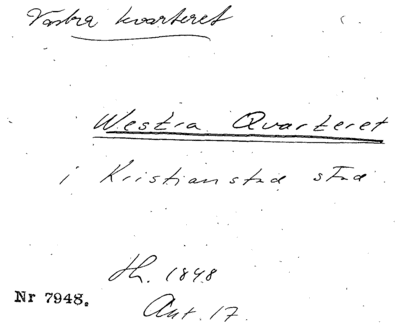 Västra kvarteret
Westra Qvarteret
i Kristianstad stad.
th. 1848
Nr 7948.
Ant. 17.